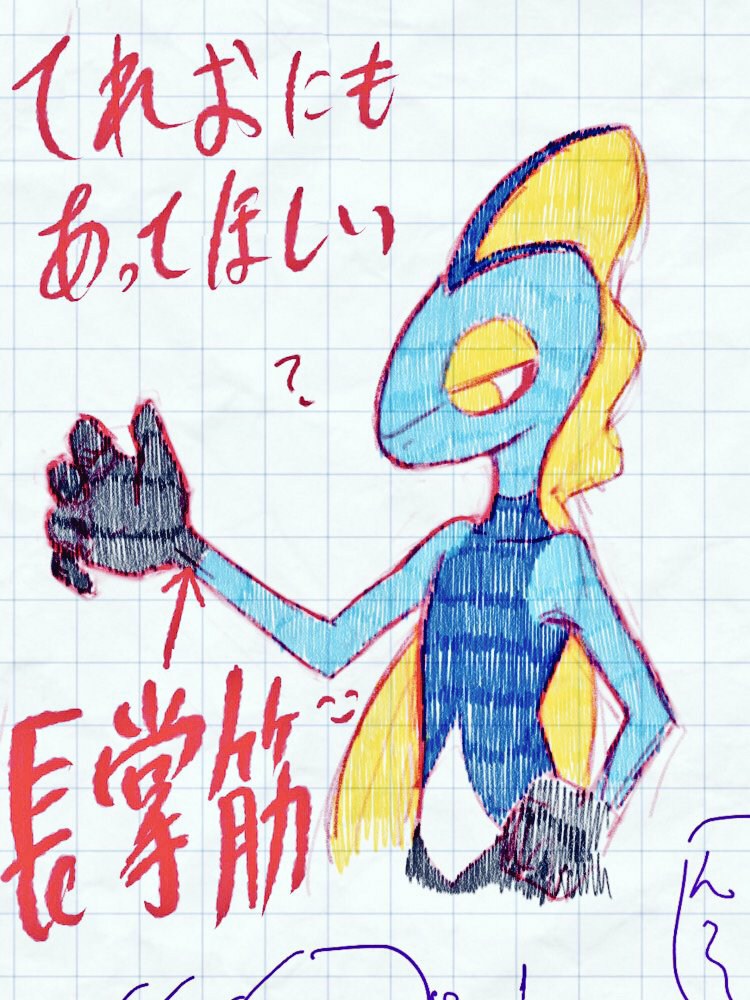 てれおにも
あってほしい
?
長掌筋